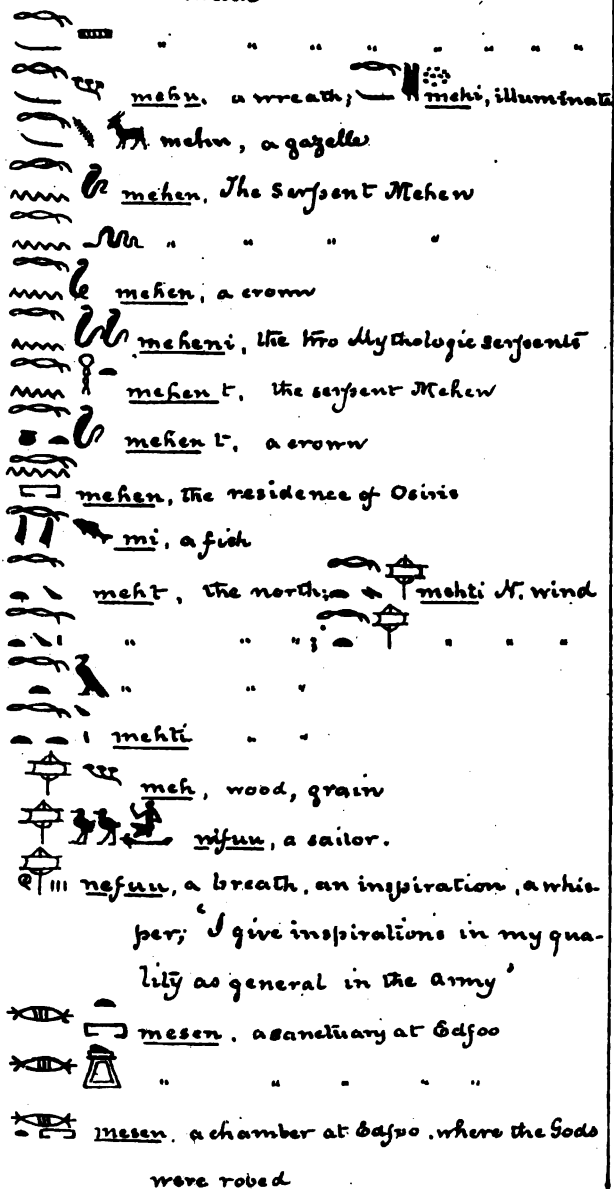 " " " " " " " "
mehu. a wreath; mehi, illuminate
mehu, a gazelle
mehen, The Serpent Mehen
" " " "
mehen, a crown
meheni, the two Mythologic serpents
mehen t, the serpent Mehen
mehen t, a crown
mehen, the residence of Osiris
mi, a fish
meht, the north; mehti N. wind
" " " ; " " "
" " "
mehti " "
meh, wood, grain
nifuu, a sailor.
nefuu, a breath, an inspiration, a whis-
per; 'I give inspirations in my qua-
lity as general in the Army'
mesen. a sanctuary at Edfoo
" " " " "
mesen. a chamber at Edfoo, where the Gods
were robed